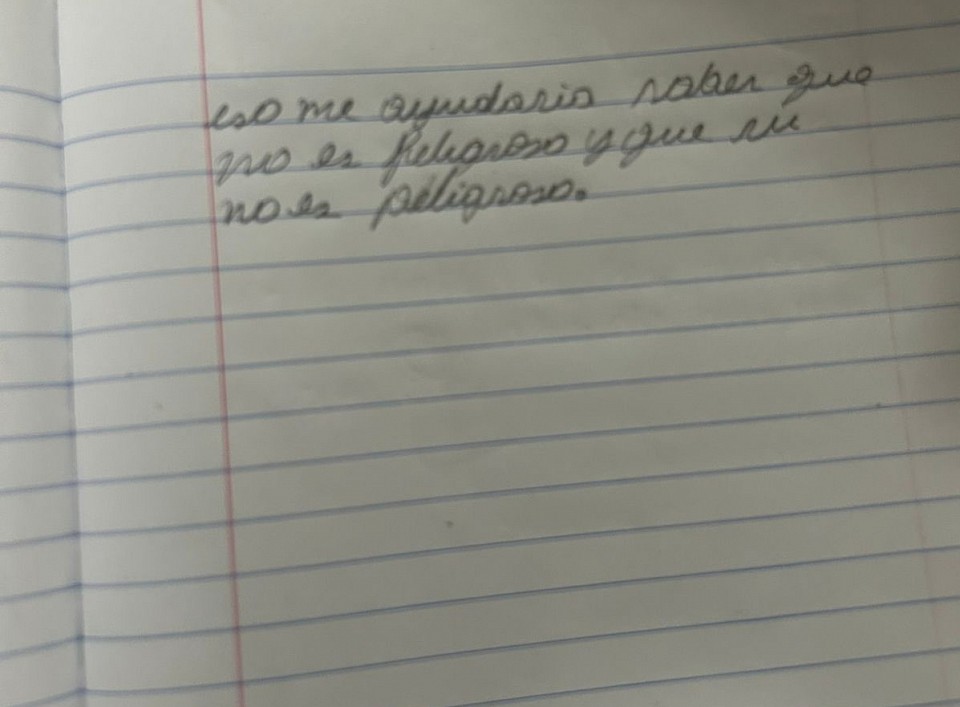 eso me ayudaria saber que
no es peligroso y que si
no es peligroso.